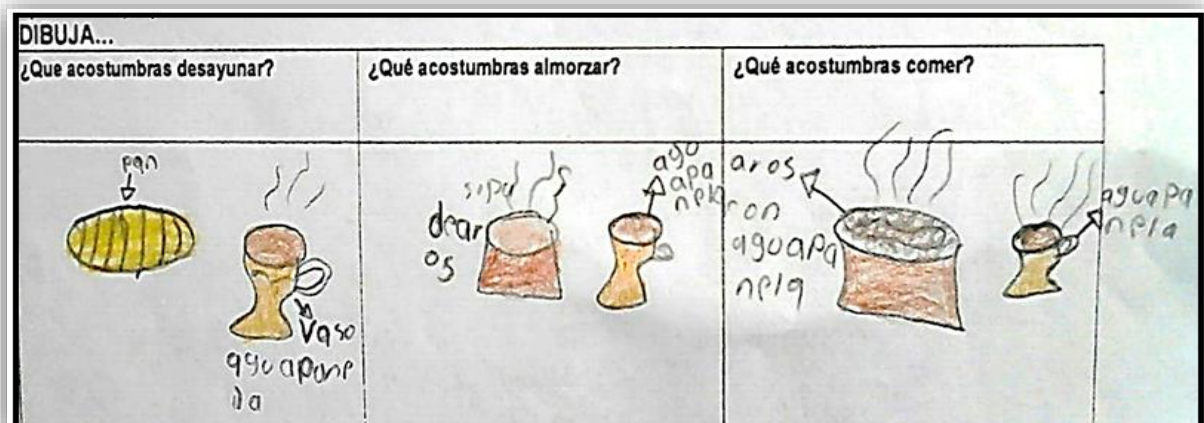 DIBUJA...
¿Que acostumbras desayunar?
¿Qué acostumbras almorzar?
¿Qué acostumbras comer?
pan
Vaso
aguapane
la
sopa
dear
os
ago
apa
nela
aros
con
aguapa
nela
aguapa
nela